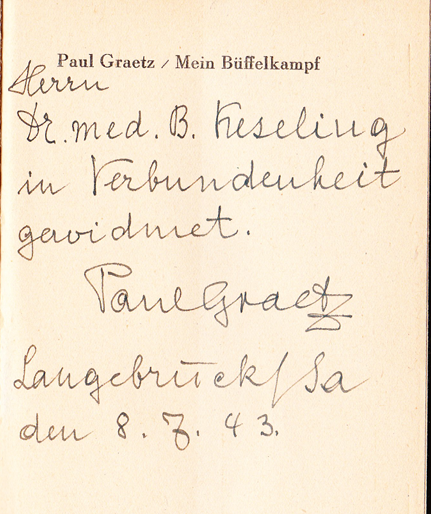 Paul Graetz / Mein Büffelkampf
Herrn
Dr. med. B. Keseling
in Verbundenheit
gewidmet.
Paul Graetz
Langebrück/Sa
den 8. 7. 43.